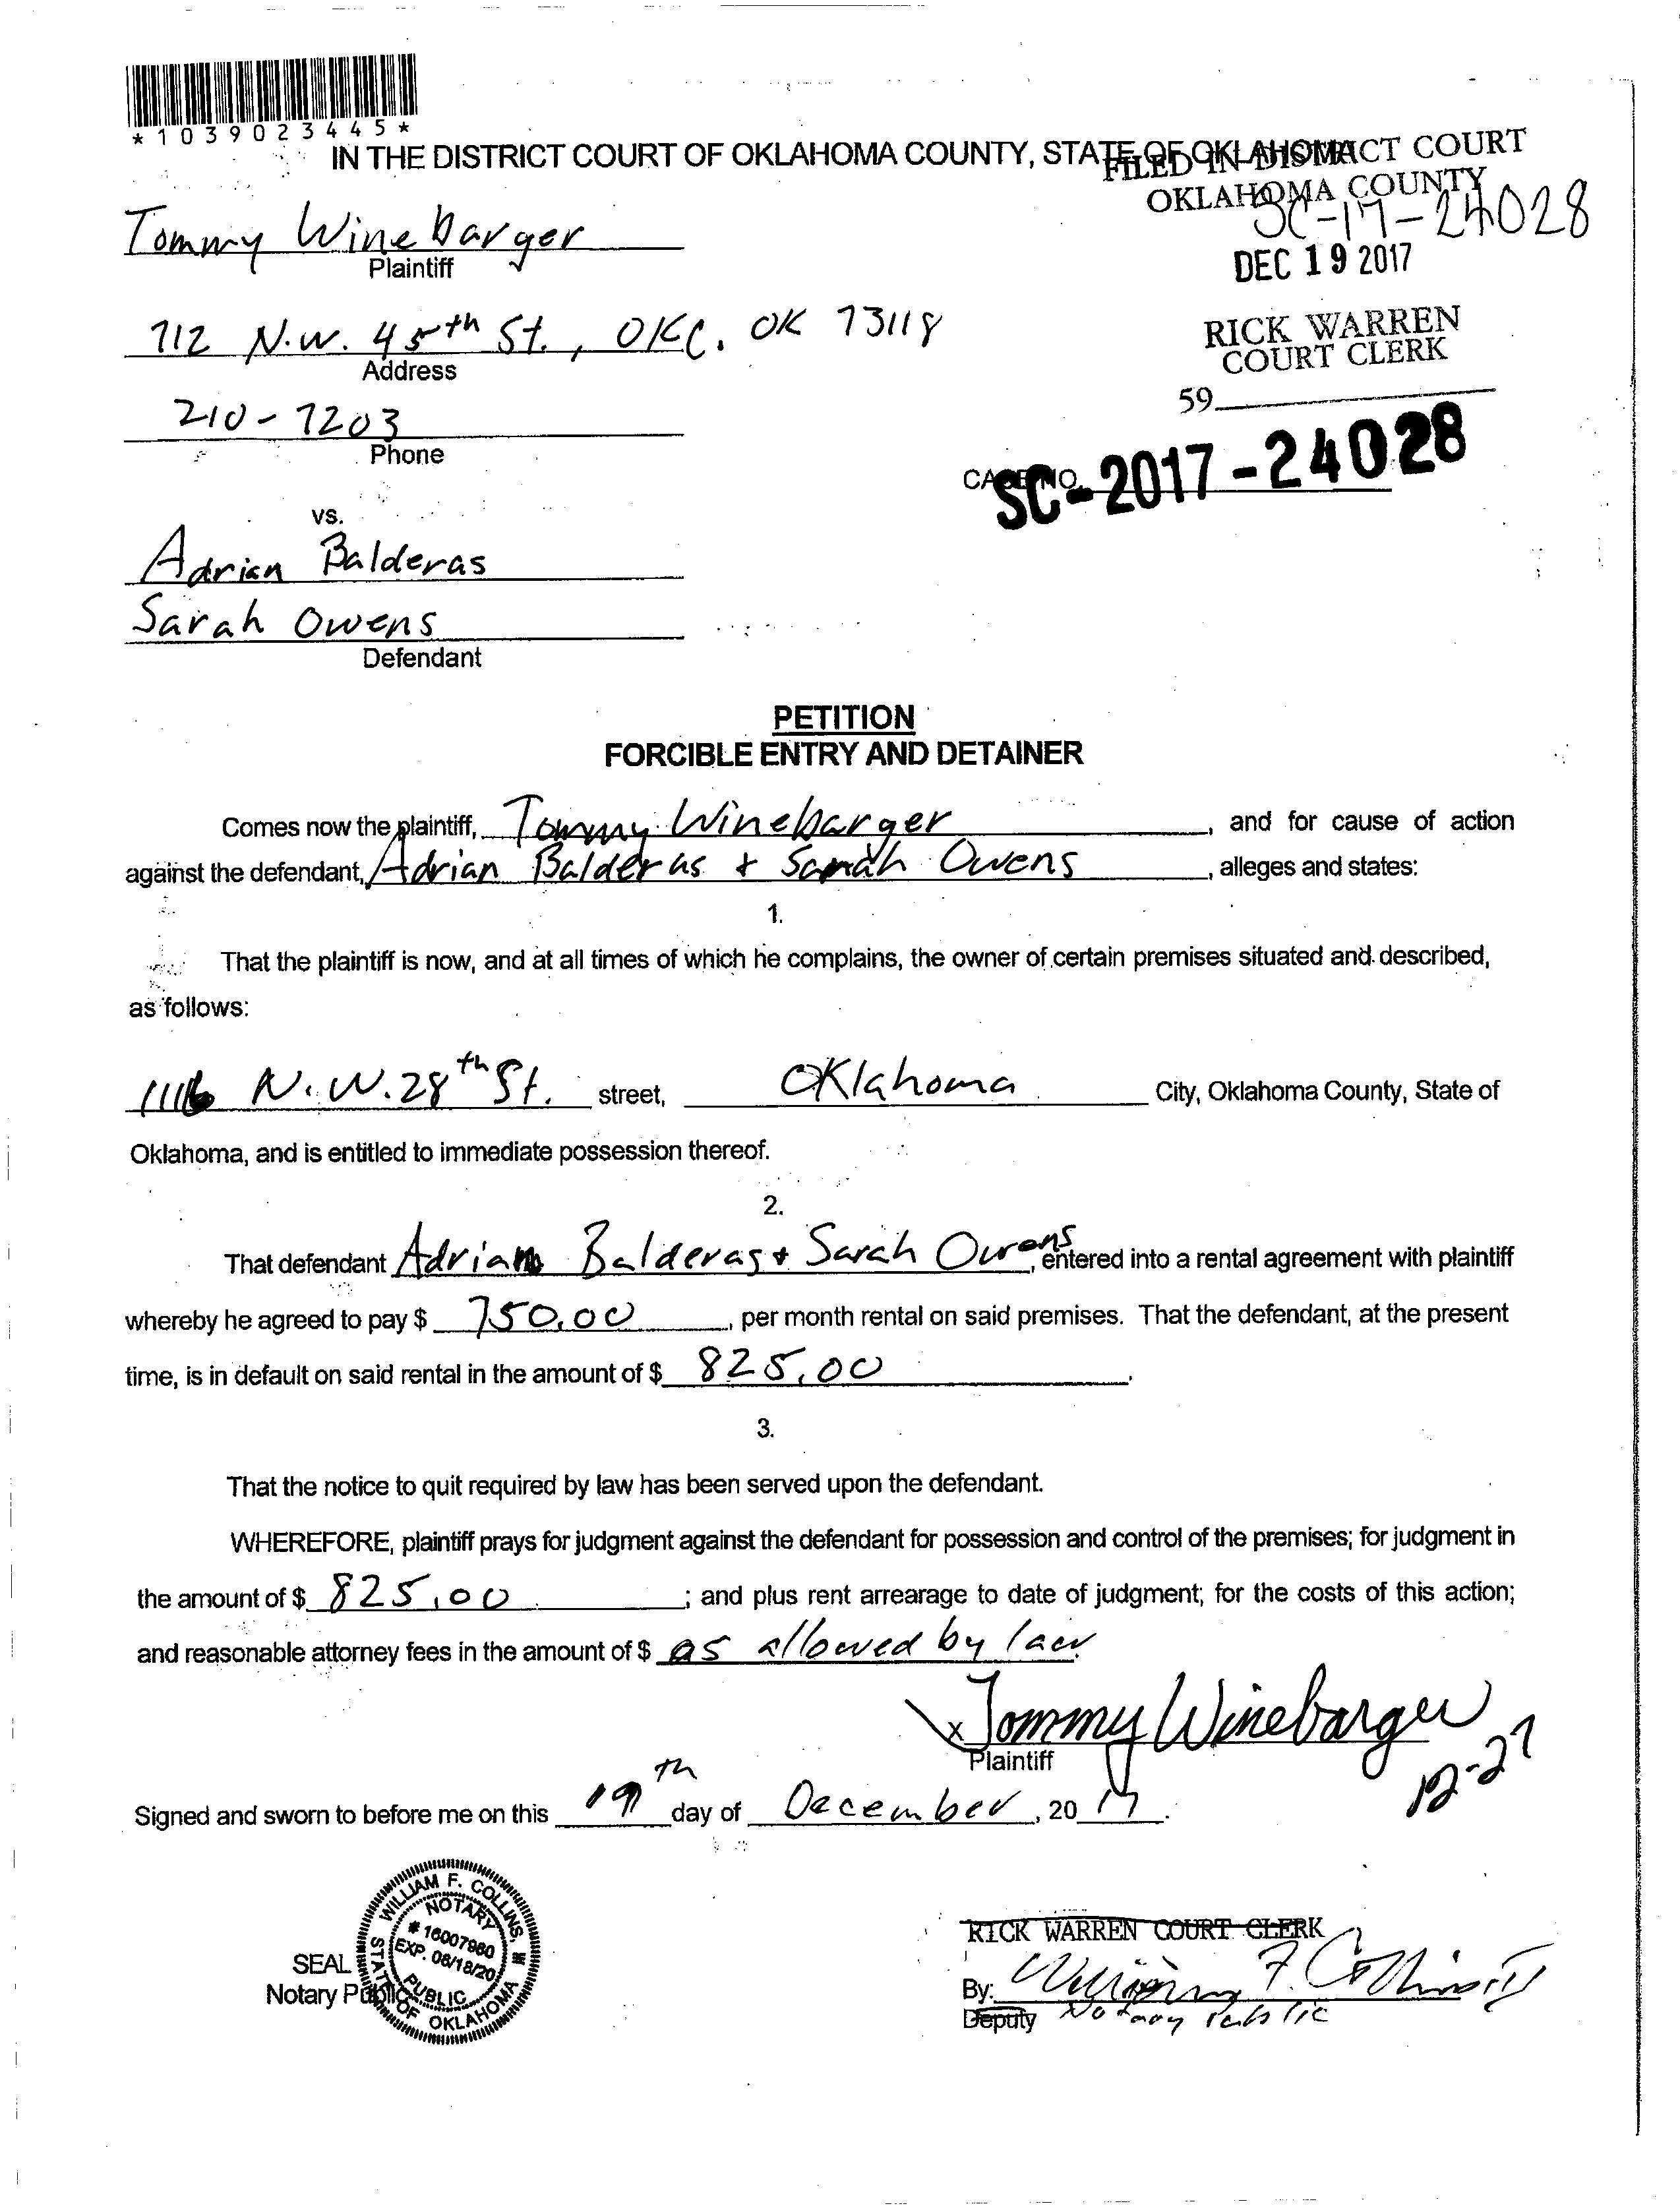 *1039023445*
IN THE DISTRICT COURT OF OKLAHOMA COUNTY, STATE OF OKLAHOMA
FILED IN DISTRICT COURT
OKLAHOMA COUNTY
SC-17-24028
Tommy Winebarger
Plaintiff
DEC 19 2017
712 N.W. 45th St., OKC. OK 73118
Address
RICK WARREN
COURT CLERK
59
210-7203
Phone
CASE NO. SC-2017-24028
vs.
Adrian Balderas
Sarah Owens
Defendant
PETITION
FORCIBLE ENTRY AND DETAINER
Comes now the plaintiff, Tommy Winebarger, and for cause of action
against the defendant, Adrian Balderas + Sarah Owens, alleges and states:
1.
That the plaintiff is now, and at all times of which he complains, the owner of certain premises situated and described,
as follows:
1116 N.W. 28th St. street, Oklahoma City, Oklahoma County, State of
Oklahoma, and is entitled to immediate possession thereof.
2.
That defendant Adrian Balderas + Sarah Owens, entered into a rental agreement with plaintiff
whereby he agreed to pay $ 750.00, per month rental on said premises. That the defendant, at the present
time, is in default on said rental in the amount of $ 825.00.
3.
That the notice to quit required by law has been served upon the defendant.
WHEREFORE, plaintiff prays for judgment against the defendant for possession and control of the premises; for judgment in
the amount of $ 825.00; and plus rent arrearage to date of judgment; for the costs of this action;
and reasonable attorney fees in the amount of $ as allowed by law.
x Tommy Winebarger
Plaintiff
12-27
Signed and sworn to before me on this 19th day of December, 2017.
WILLIAM F. COLLINS, III
NOTARY
# 16007960
EXP. 08/18/20
PUBLIC
STATE OF OKLAHOMA
SEAL
Notary Public
RICK WARREN COURT CLERK
By: William F. Collins III
Deputy Notary Public